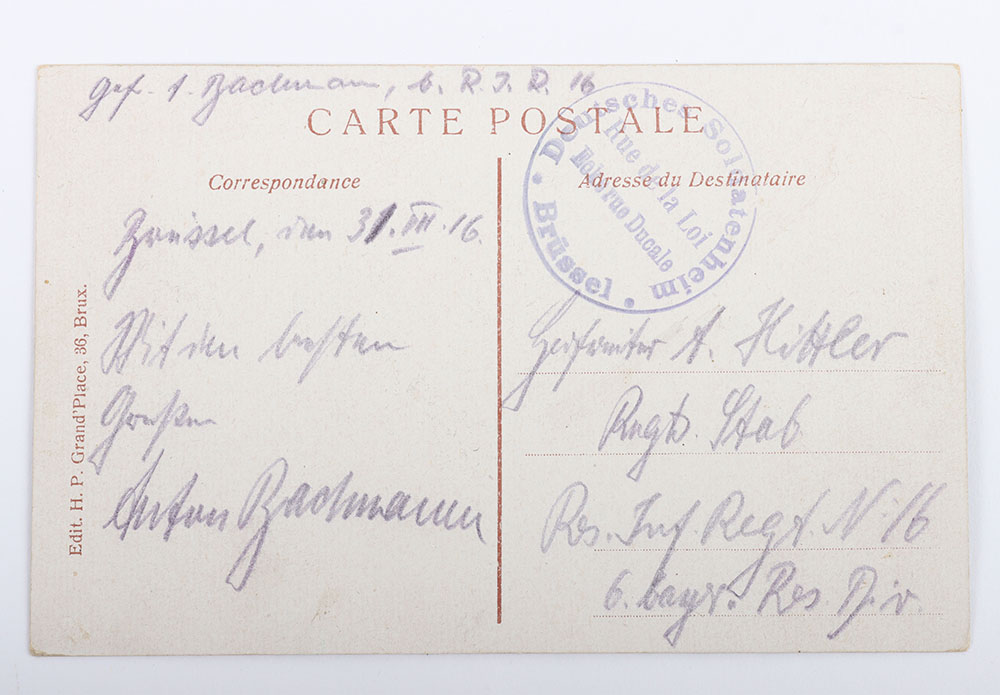 Gef. A. Bachmann, b. R. I. R. 16
CARTE POSTALE
Correspondance
Adresse du Destinataire
Deutsches Soldatenheim • Brüssel •
Rue de la Loi
Ducale
Brüssel, den 31. VII. 16.
Mit den besten
Grüßen
Anton Bachmann
Gefreiter A. Hittler
Regts. Stab
Res. Inf. Regt. N: 16
6. bayr. Res. Div.
Edit. H. P. Grand'Place, 36, Brux.